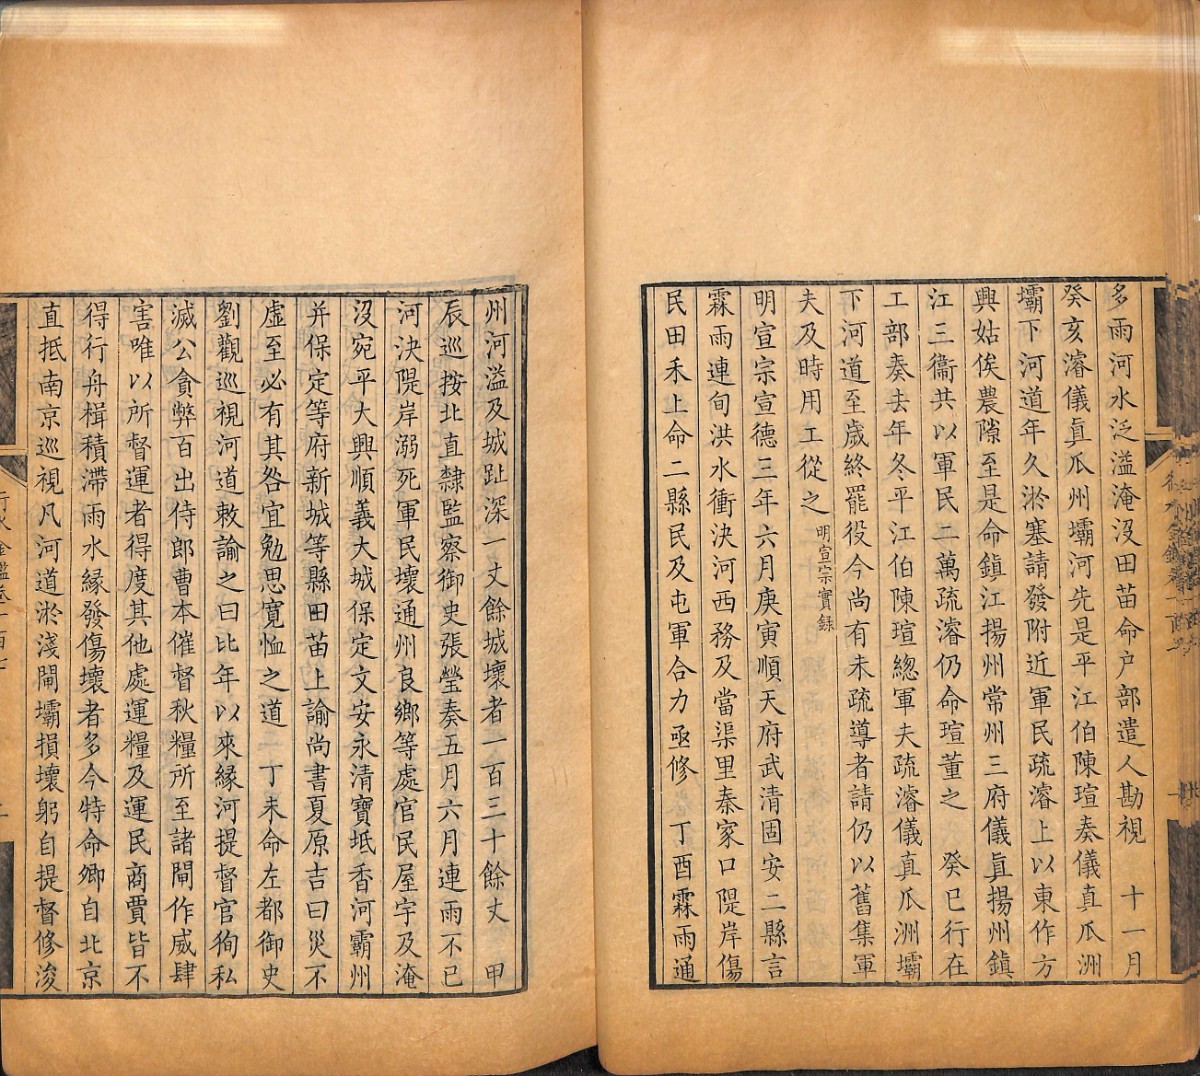 多雨河水泛溢淹沒田苗命户部遣人勘視　十一月
癸亥濬儀真瓜州壩河先是平江伯陳瑄奏儀真瓜洲
壩下河道年久淤塞請發附近軍民疏濬上以東作方
興姑俟農隙至是命鎮江揚州常州三府儀真揚州鎮
江三衞共以軍民二萬疏濬仍命瑄董之　癸巳行在
工部奏去年冬平江伯陳瑄總軍夫疏濬儀真瓜洲壩
下河道至歲終罷役今尚有未疏導者請仍以舊集軍
夫及時用工從之明宣宗實錄
明宣宗宣德三年六月庚寅順天府武清固安二縣言
霖雨連旬洪水衝決河西務及當渠里秦家口隄岸傷
民田禾上命二縣民及屯軍合力亟修　丁酉霖雨通
州河溢及城趾深一丈餘城壞者一百三十餘丈　甲
辰巡按北直隸監察御史張瑩奏五月六月連雨不已
河決隄岸溺死軍民壞通州良鄉等處官民屋宇及淹
沒宛平大興順義大城保定文安永清寶坻香河霸州
并保定等府新城等縣田苗上諭尚書夏原吉曰災不
虛至必有其咎宜勉思寬恤之道　丁未命左都御史
劉觀巡視河道敕諭之曰比年以來緣河提督官徇私
滅公貪弊百出侍郎曹本催督秋糧所至諸閘作威肆
害唯以所督運者得度其他處運糧及運民商賈皆不
得行舟楫積滯雨水緣發傷壞者多今特命卿自北京
直抵南京巡視凡河道淤淺閘壩損壞躬自提督修浚
行水金鑑卷一百七